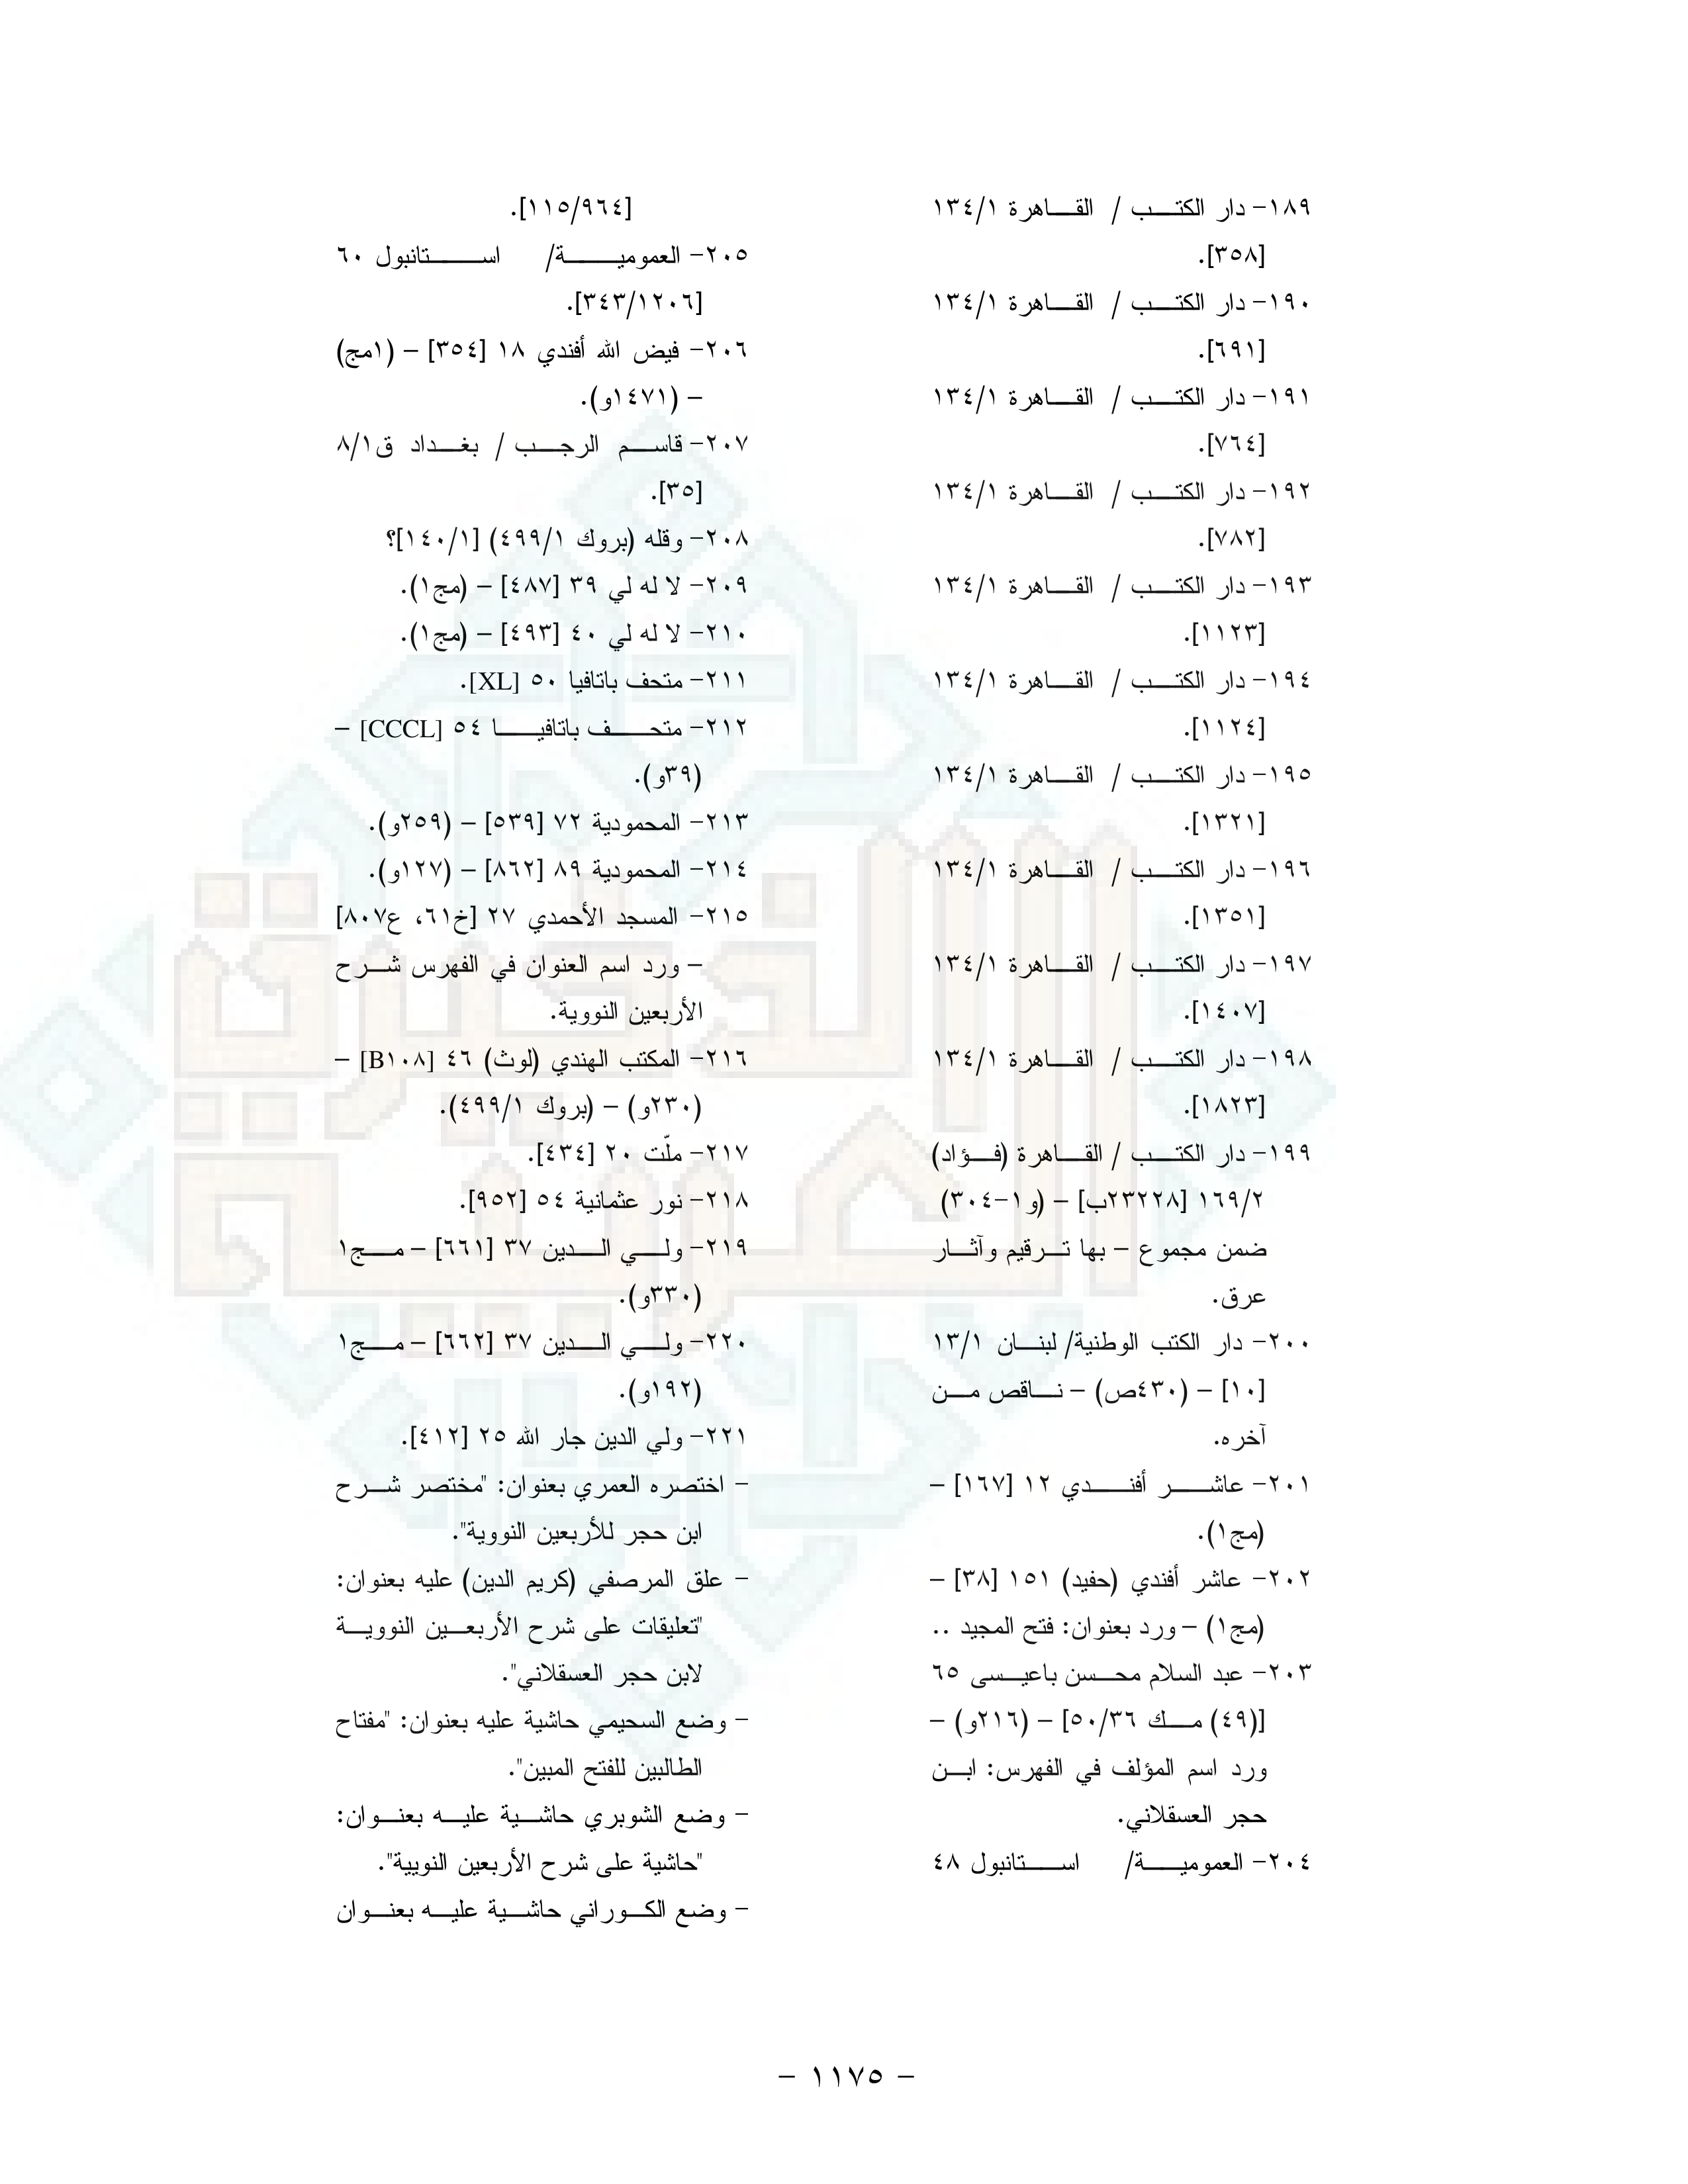 ١٨٩- دار الكتب / القاهرة ١٣٤/١
[٣٥٨].
١٩٠- دار الكتب / القاهرة ١٣٤/١
[٦٩١].
١٩١- دار الكتب / القاهرة ١٣٤/١
[٧٦٤].
١٩٢- دار الكتب / القاهرة ١٣٤/١
[٧٨٢].
١٩٣- دار الكتب / القاهرة ١٣٤/١
[١١٢٣].
١٩٤- دار الكتب / القاهرة ١٣٤/١
[١١٢٤].
١٩٥- دار الكتب / القاهرة ١٣٤/١
[١٣٢١].
١٩٦- دار الكتب / القاهرة ١٣٤/١
[١٣٥١].
١٩٧- دار الكتب / القاهرة ١٣٤/١
[١٤٠٧].
١٩٨- دار الكتب / القاهرة ١٣٤/١
[١٨٢٣].
١٩٩- دار الكتب / القاهرة (فؤاد)
١٦٩/٢ [٢٣٢٢٨ب] – (و١-٣٠٤)
ضمن مجموع – بها ترقيم وآثار
عرق.
٢٠٠- دار الكتب الوطنية/ لبنان ١٣/١
[١٠] – (٤٣٠ص) – ناقص من
آخره.
٢٠١- عاشر أفندي ١٢ [١٦٧] –
(مج١).
٢٠٢- عاشر أفندي (حفيد) ١٥١ [٣٨] –
(مج١) – ورد بعنوان: فتح المجيد ..
٢٠٣- عبد السلام محسن باعيسى ٦٥
[(٤٩) مك ٥٠/٣٦] – (٢١٦و) –
ورد اسم المؤلف في الفهرس: ابن
حجر العسقلاني.
٢٠٤- العمومية/ استانبول ٤٨
[١١٥/٩٦٤].
٢٠٥- العمومية/ استانبول ٦٠
[٣٤٣/١٢٠٦].
٢٠٦- فيض الله أفندي ١٨ [٣٥٤] – (١مج)
– (١٤٧١و).
٢٠٧- قاسم الرجب / بغداد ق٨/١
[٣٥].
٢٠٨- وقله (بروك ٤٩٩/١) [١٤٠/١]؟
٢٠٩- لا له لي ٣٩ [٤٨٧] – (مج١).
٢١٠- لا له لي ٤٠ [٤٩٣] – (مج١).
٢١١- متحف باتافيا ٥٠ [XL].
٢١٢- متحف باتافيا ٥٤ [CCCL] –
(٣٩و).
٢١٣- المحمودية ٧٢ [٥٣٩] – (٢٥٩و).
٢١٤- المحمودية ٨٩ [٨٦٢] – (١٢٧و).
٢١٥- المسجد الأحمدي ٢٧ [خ٦١، ع٨٠٧]
– ورد اسم العنوان في الفهرس شرح
الأربعين النووية.
٢١٦- المكتب الهندي (لوث) ٤٦ [B١٠٨] –
(٢٣٠و) – (بروك ٤٩٩/١).
٢١٧- ملّت ٢٠ [٤٣٤].
٢١٨- نور عثمانية ٥٤ [٩٥٢].
٢١٩- ولي الدين ٣٧ [٦٦١] – مج١
(٣٣٠و).
٢٢٠- ولي الدين ٣٧ [٦٦٢] – مج١
(١٩٢و).
٢٢١- ولي الدين جار الله ٢٥ [٤١٢].
– اختصره العمري بعنوان: "مختصر شرح
ابن حجر للأربعين النووية".
– علق المرصفي (كريم الدين) عليه بعنوان:
"تعليقات على شرح الأربعين النووية
لابن حجر العسقلاني".
– وضع السحيمي حاشية عليه بعنوان: "مفتاح
الطالبين للفتح المبين".
– وضع الشوبري حاشية عليه بعنوان:
"حاشية على شرح الأربعين النويية".
– وضع الكوراني حاشية عليه بعنوان
– ١١٧٥ –
الذخيرة
العربية